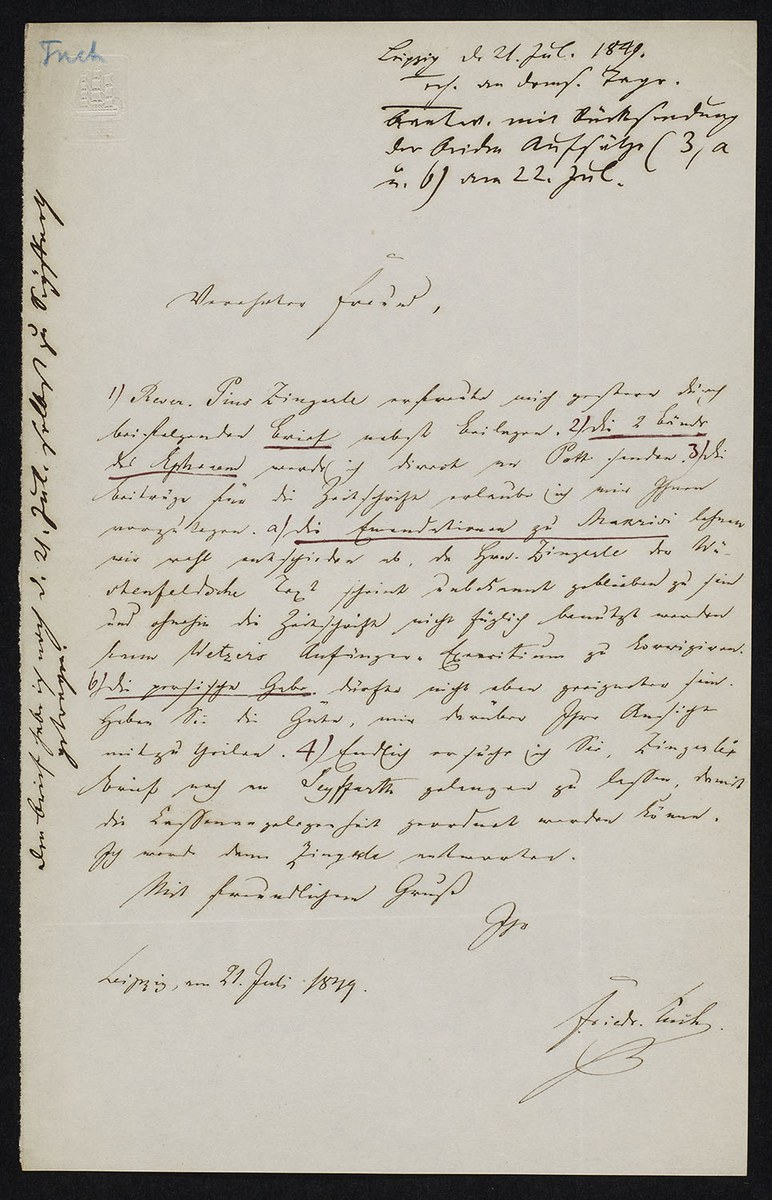 Tuch
Leipzig d. 21. Jul. 1849.
erh. an dems. Tage.
beantw. mit Rücksendung
der beiden Aufsätze (3, a
u. b) am 22. Jul.
Verehrter Freund,
1) Rever. Pius Zingerle erfreute mich gestern durch
beifolgenden Brief nebst Beilagen. 2) die 2 Bände
des Ephraem werde ich direct an Pott senden. 3) die
Beiträge für die Zeitschrift erlaube ich mir Ihnen
vorzulegen. a) die Emendationen zu Makrizi lehnen
wir wohl entschieden ab, da Hrn. Zingerle der Wü-
stenfeldsche Text scheint unbekannt geblieben zu sein
und ohnehin die Zeitschrift nicht füglich benutzt werden
kann Wetzer's Anfänger-Exercitium zu korrigiren.
b) die persische Gabe dürfte nicht eben geeigneter sein.
Haben Sie die Güte, mir darüber Ihre Ansicht
mitzutheilen. 4) Endlich ersuche ich Sie, Zingerle's
Brief noch an Seyffarth gelangen zu lassen, damit
die Kassenangelegenheit geordnet werden könne.
Ich werde dann Zingerle antworten.
Mit freundlichem Gruß
Ihr
Leipzig, am 21. Juli 1849.
Friedr. Tuch.
Den Brief habe ich noch d. 21. Jul. selbst zu Seyffarth
getragen